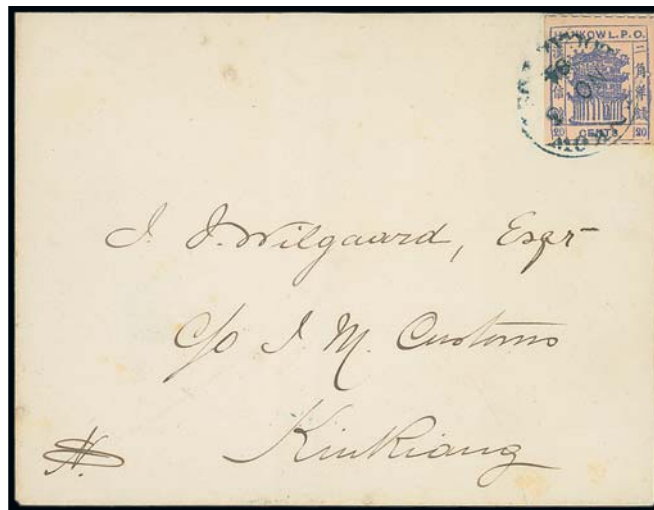 HANKOW L.P.O.
二角洋銀
20 CENTS 20
J. J. Wilgaard, Esqr
c/o I. M. Customs
Kinkiang